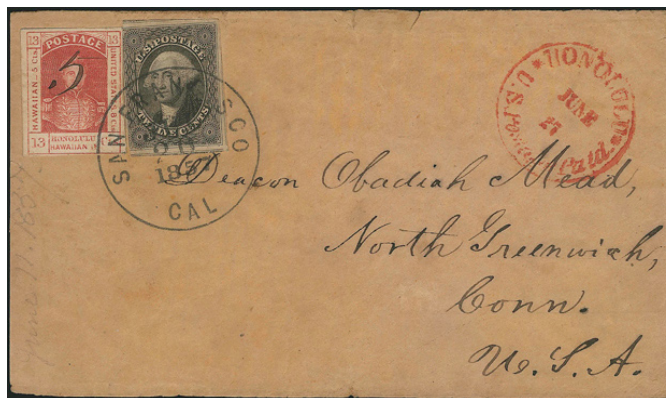 13 POSTAGE 13
HAWAIIAN - 5 Cts.
UNITED STATES 8 Cts.
5
13 HONOLULU
HAWAIIAN
U.S. POSTAGE
CENTS
SAN FRANCISCO
20
1857
CAL
HONOLULU
U.S. Postage Paid
JUNE
27
Deacon Obadiah Mead,
North Greenwich,
Conn.
U.S.A.